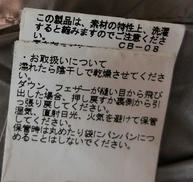 この製品は、素材の特性上、洗濯
すると縮みますのでご注意ください。
CB-08
・お取扱いについて
濡れたら陰干しで乾燥させてください。
ダウン、フェザーが縫い目から飛び
出した場合、押し戻すか裏側から引
っ張り戻してください。
湿気、直射日光、火気を避けて保管
してください。
保管時は丸めたり袋にパンパンにつ
めることはしないでください。